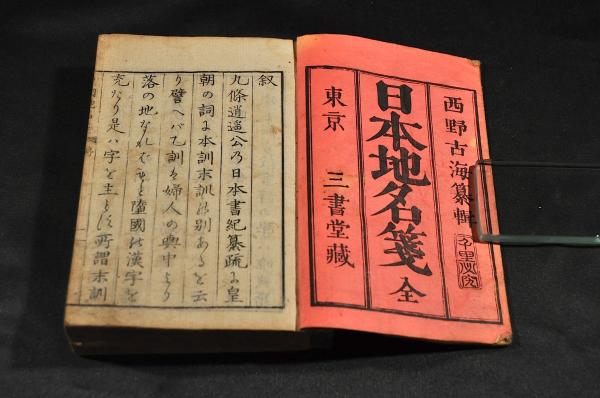 西野古海纂輯
日本地名箋 全
東京 三書堂藏
叙
九條逍遥公乃日本書紀纂疏に皇
朝の詞に本訓末訓の別あると云
り譬へバ本訓を婦人の輿中より
落の地なれど
隨國の漢字を
充たり是ハ字を主とす所謂末訓